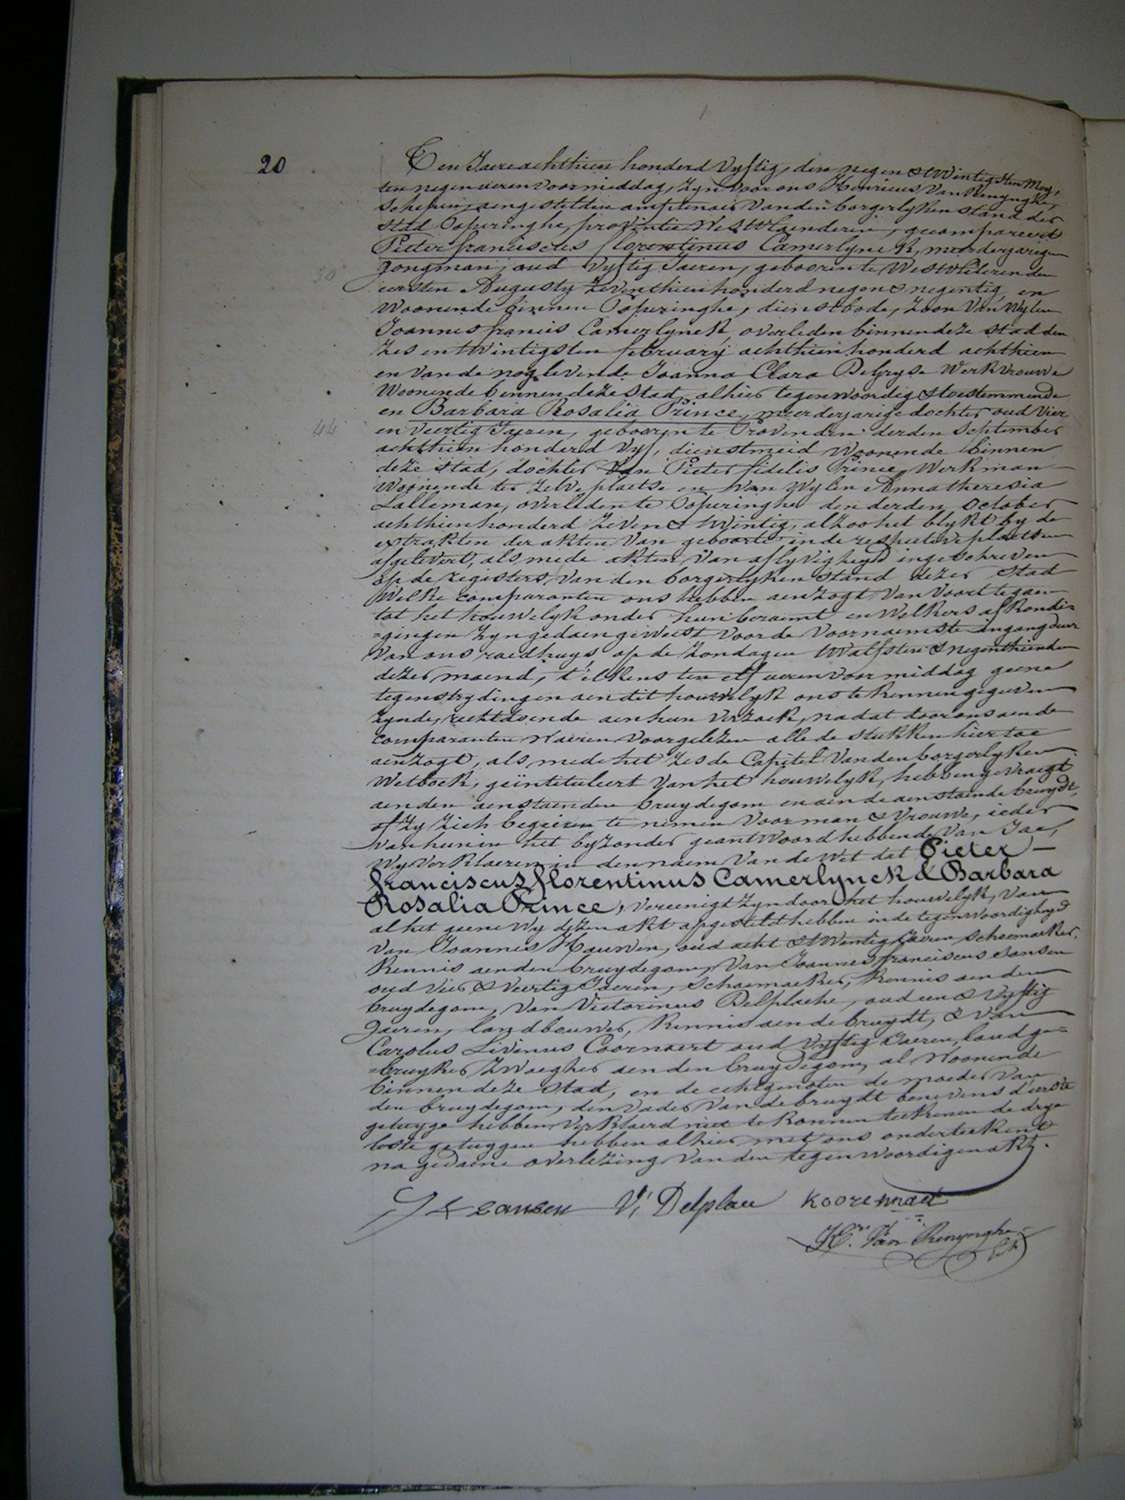 20
Ten Jaere achthien honderd vyftig, den negen & twintigsten Mey,
ten negen ueren voormiddag, zyn voor ons Henricus Van Renynghe,
schepen, aengestelden amptenaer van den borgerlyken stand der
stad Poperinghe, provintie West Vlaenderen, gecompareerd
Pieter franciscus florentinus Camerlynck, meerderjarigen
jongman, oud vyftig Jaeren, gebooren te Westvleteren den
eersten Augusty zeventhien honderd negen & negentig, en
woonende binnen Poperinghe, dienstbode, zoon van wylen
Joannes francis Camerlynck, overleden binnen deze stad den
zes en twintigsten february achthien honderd achthien
en van de nog levende Joanna Clara Degryse werkvrouwe
woonende binnen deze stad, alhier tegenwoordig & toestemmende
en Barbara Rosalia Prince, meerderjarige dochter oud vier
44
en veertig Jaeren, geboorn te Proven den derden September
achthien honderd vyf, dienstmeid woonende binnen
deze stad, dochter van Pieter fidelis Prince, werkman
woonende ter zelve plaetse en van wylen Anna theresia
Lalleman, overleden te Poperinghe den derden October
achthien honderd zeven & twintig, alzoo het blykt by de
extrakten der akten van geboorte in de respective plaetsen
afgelevert, als mede akten van aflyvigheyd ingeschreven
op de registers van den borgerlyken stand dezer stad
Welke comparanten ons hebben aenzogt van voort te gaen
tot het houwelyk onder hun beraemt en welkers afkondi=
=gingen zyn gedaen geweest voor de voornaemste ingang deur
van ons raedhuys, op de zondagen twalfsten & negenthienden
dezer maend, t'elkens ten elf ueren voormiddag geene
tegenstrydingen aen dit houwelyk ons te kennen gegeven
zynde, rechtdoende aen hun verzoek, nadat door ons aen de
comparanten waeren voorgelezen alle de stukken hier toe
aenzogt, als mede het zesde Capitel van den borgerlyken
Wetboek, geïntituleert van het houwelyk, hebben gevraegt
aen den aenstaenden bruydegom en aen de aenstaende bruydt,
of zy zich begeiren te nemen voor man & vrouwe, ieder
van hun in het byzonder geantwoord hebbende van Jae,
Wy verklaeren in den naem van de Wet dat Pieter
franciscus florentinus Camerlynck & Barbara
Rosalia Prince, vereenigt zyn door het houwelyk, van
al het geene wy dezen akt opgestelt hebben in de tegenwoordigheyd
van Joannes Hauwen, oud acht & twintig Jaeren schoemaeker,
kennis aen den bruydegom, van Joannes franciscus Jansen
oud vier & veertig Jaeren, schoemaeker, kennis aen den
bruydegom, van Victorinus Delplache, oud een & vyftig
Jaeren, landbouwer, kennis aen de bruydt, & van
Carolus Livinus Coornaert oud vyftig Jaeren, land ge=
=bruyker zwaegher aen den bruydegom, al woonende
binnen deze stad, en de echtgenoten de moeder van
den bruydegom, den vader van de bruydt benevens d'eerste
getuyge hebben verklaerd niet te konnen teekenen de drye
leste getuygen hebben alhier met ons onderteekent
na gedaene overlezing van den tegenwoordigen akt.
J F Jansen V; Delplace Koorenaert
He. Van Renynghe